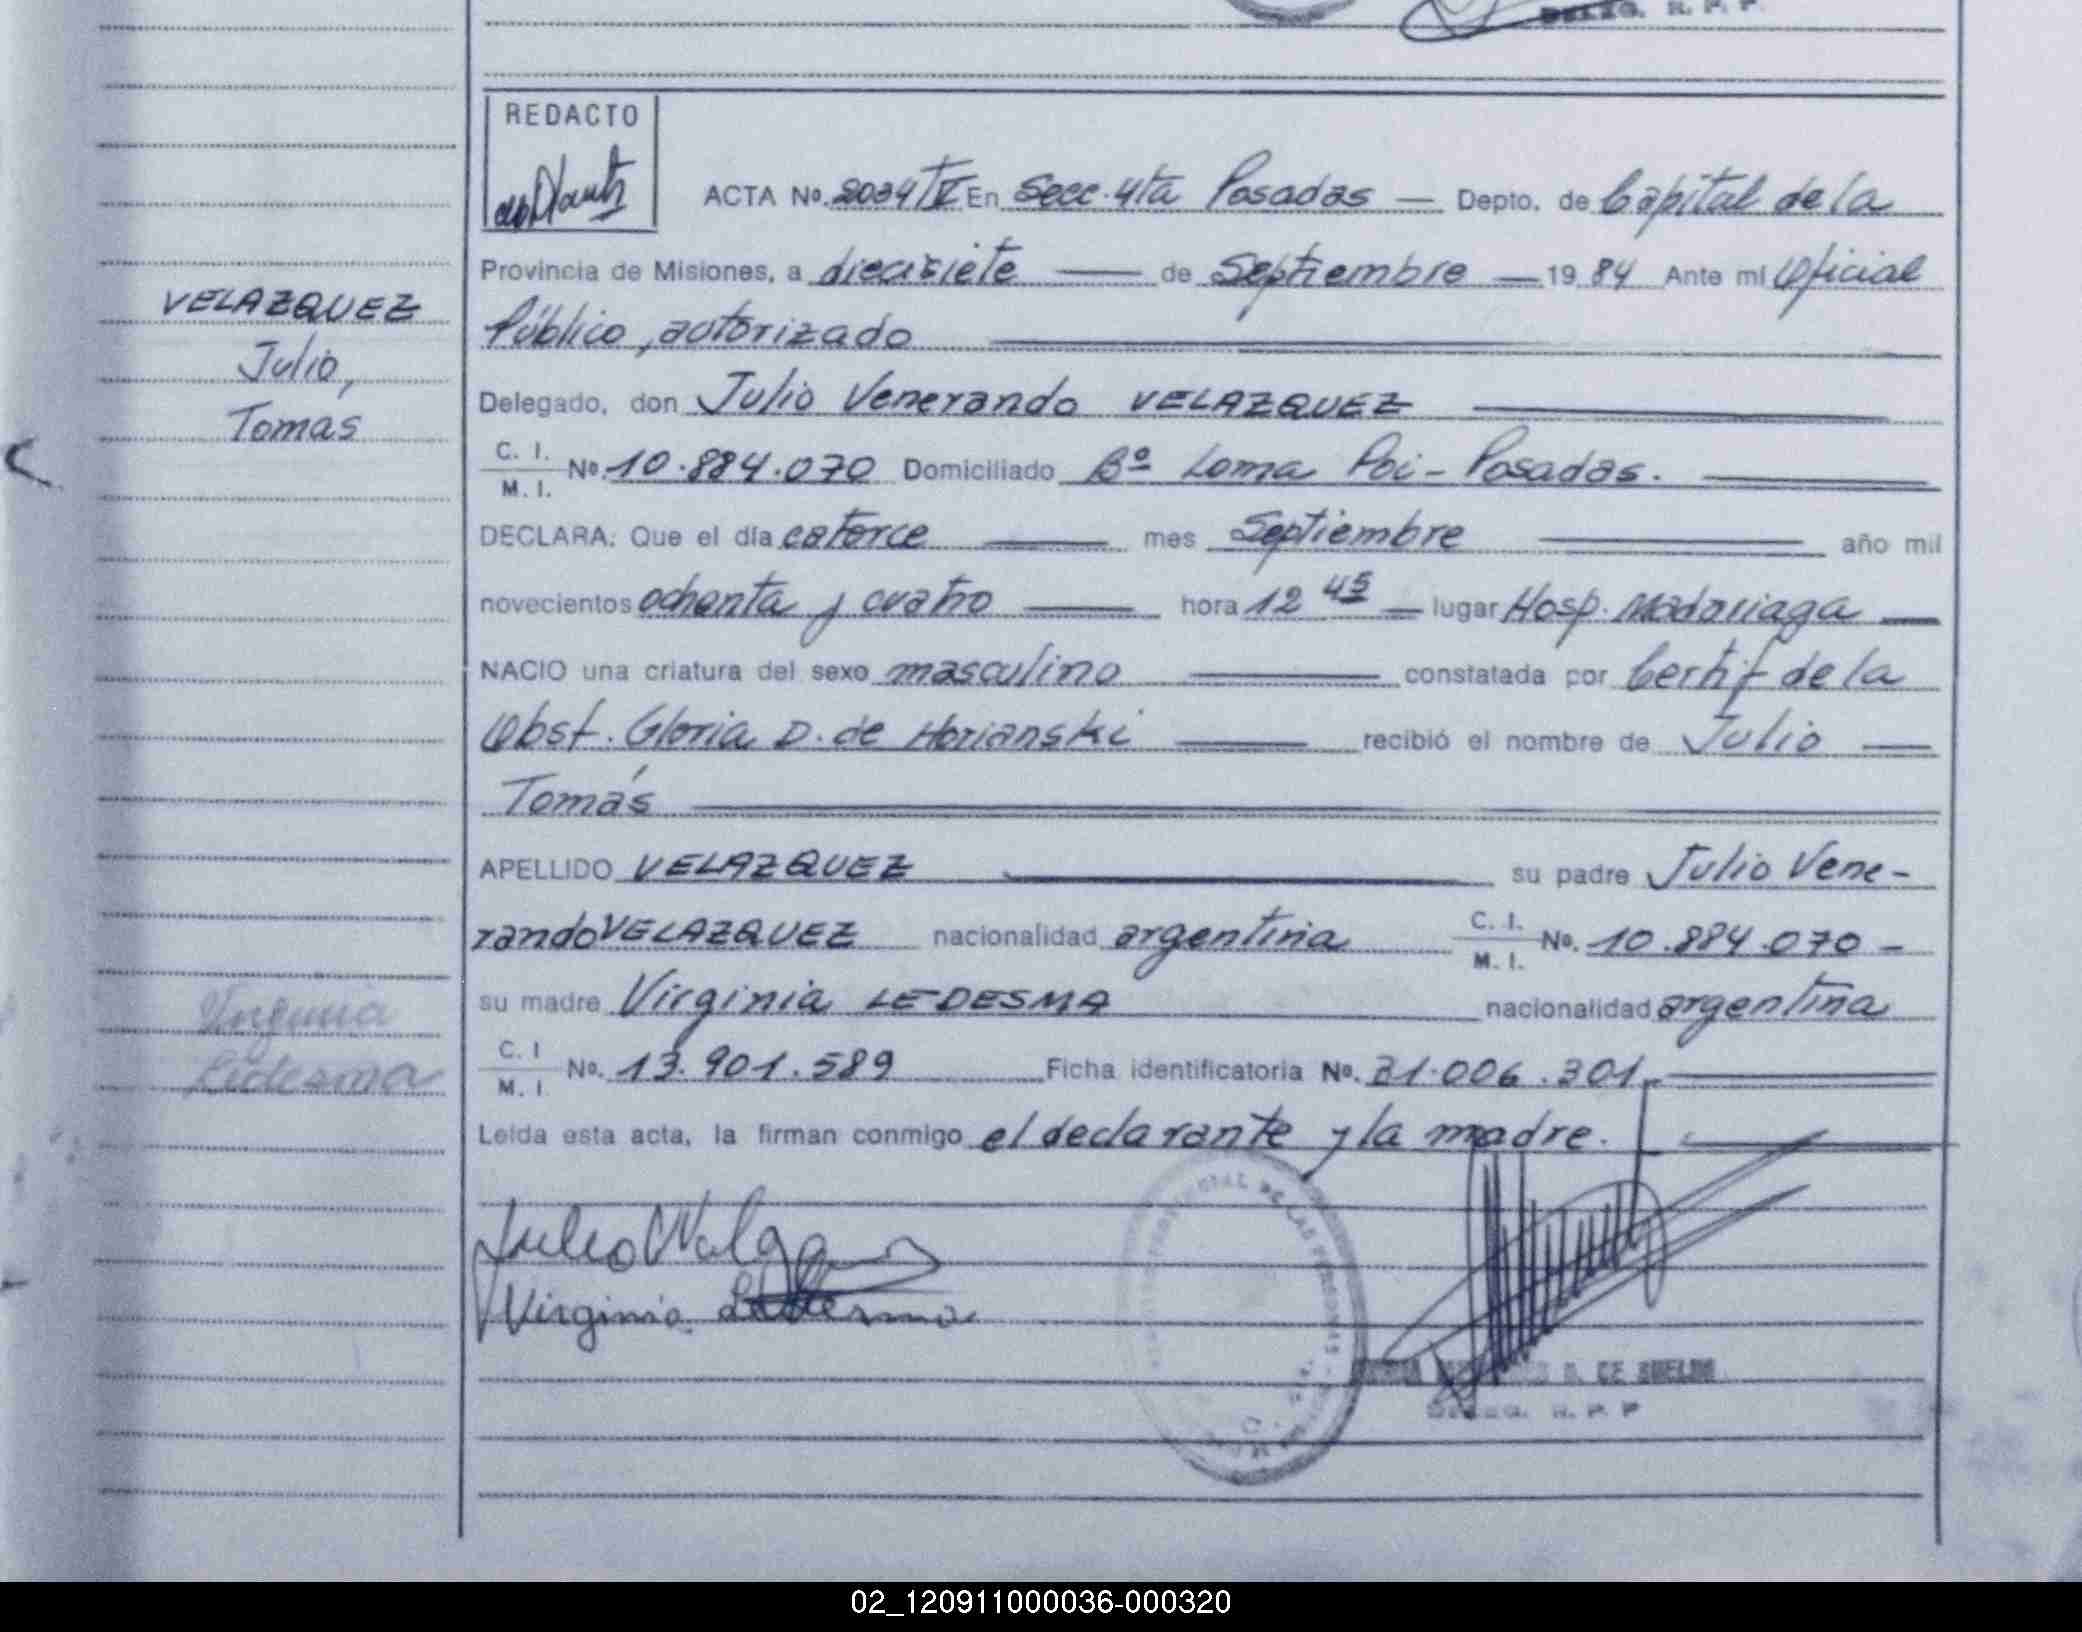 DELEG. R. P. P.
REDACTO
ACTA Nº. 2034/IV En Secc. 4ta Posadas — Depto. de Capital de la
Provincia de Misiones, a diecisiete — de Septiembre — 19 84 Ante mí Oficial
Público, autorizado
VELAZQUEZ
Julio,
Tomas
Delegado, don Julio Venerando VELAZQUEZ
C. I.
M. I. Nº. 10.884.070 Domiciliado Bº Loma Poi - Posadas.
DECLARA: Que el día catorce — mes Septiembre — año mil
novecientos ochenta y cuatro — hora 12 45 — lugar Hosp. Madariaga —
NACIO una criatura del sexo masculino — constatada por Certif de la
Obst. Gloria D. de Horianski — recibió el nombre de Julio —
Tomás
APELLIDO VELAZQUEZ — su padre Julio Vene-
rando VELAZQUEZ nacionalidad argentina C. I.
M. I. Nº. 10.884.070 -
su madre Virginia LEDESMA nacionalidad argentina
C. I
M. I. Nº. 13.901.589 Ficha identificatoria Nº. 31.006.301.-
Virginia
Ledesma
Leída esta acta, la firman conmigo el declarante y la madre.
Virginia Ledesma
DE LAS PERSONAS
D. DE
DELEG. R. P. P
02_120911000036-000320